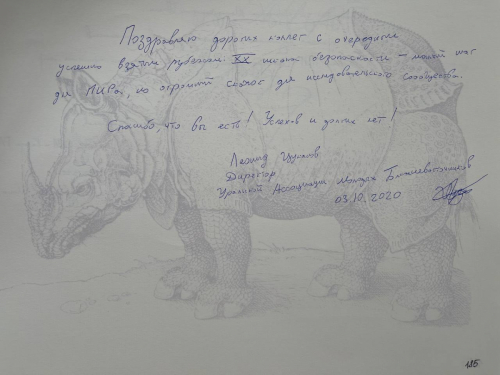 Поздравляю дорогих коллег с очередным
успешно взятым рубежом. XX школа безопасности – малый шаг
для МИРа, но огромный скачок для исследовательского сообщества.
Спасибо, что вы есть! Успехов и долгих лет!
Леонид
Директор
Уральской Ассоциации Молодых
03.10.2020
185